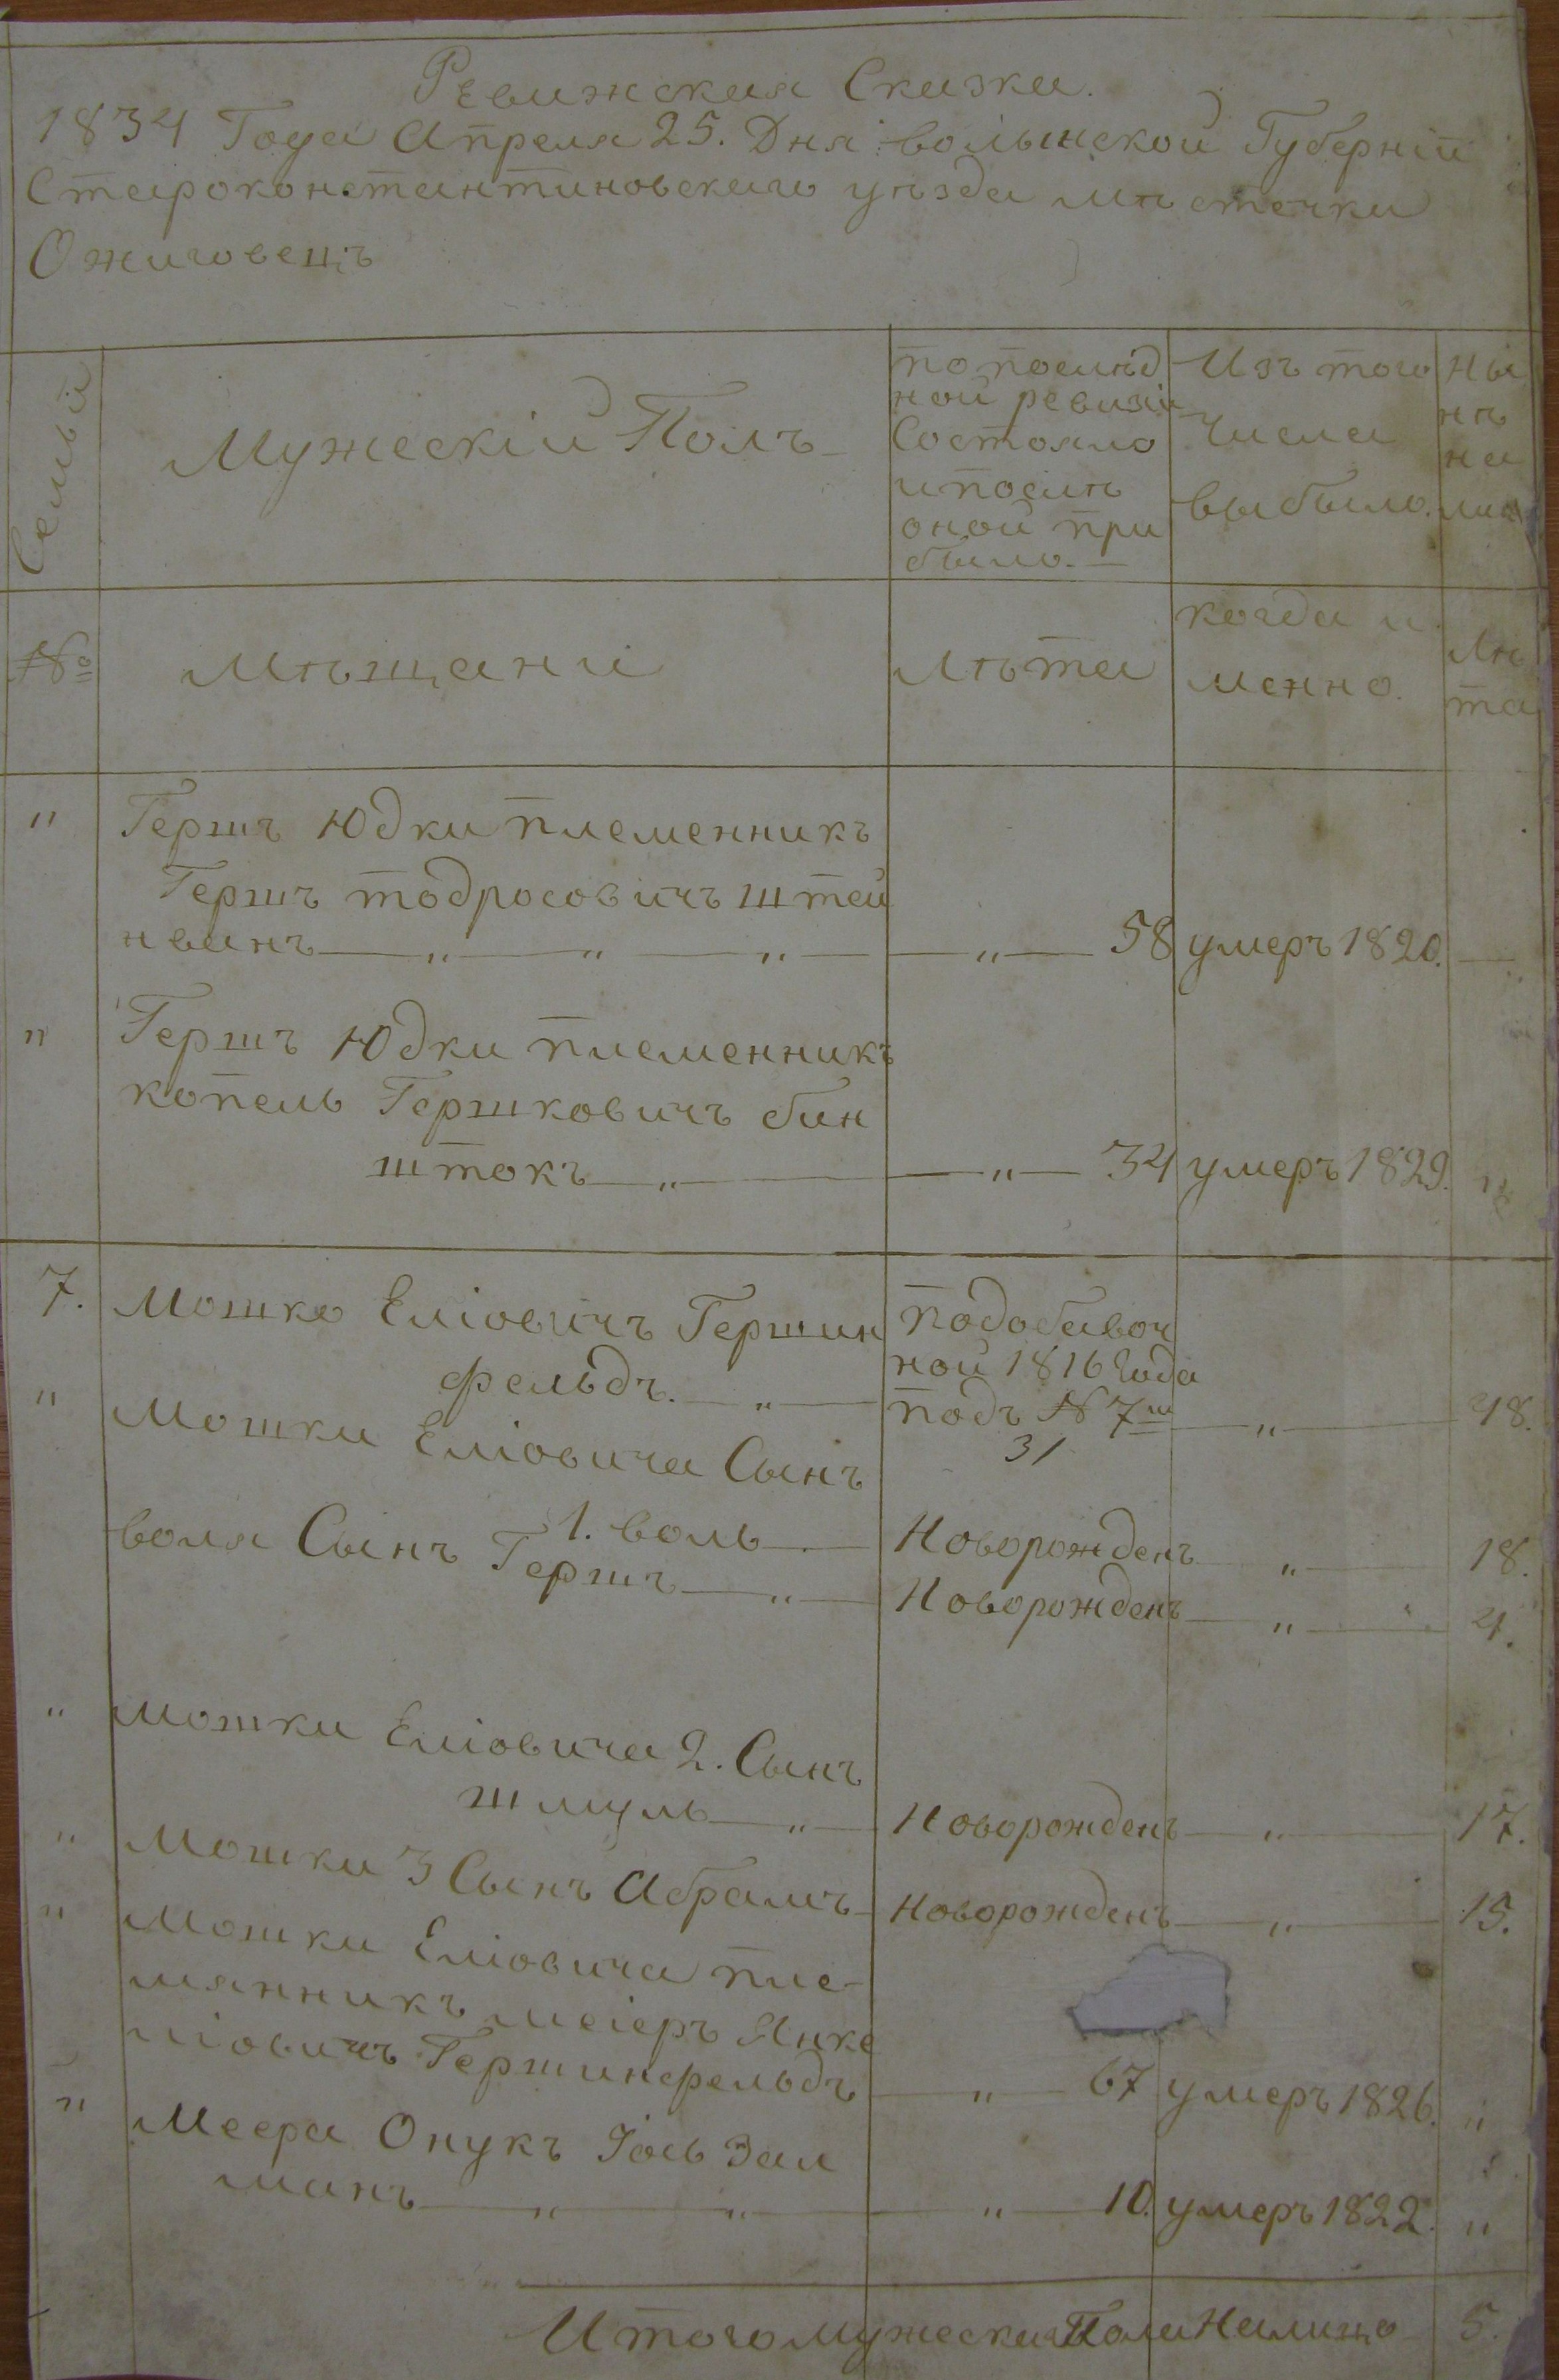 Ревижская Сказка.
1834 Года Апреля 25. Дня волынской Губерніи
Староконстантиновскаго уѣзда мѣстечка
Ожиговецъ
Семьи
Мужескій Полъ
по послѣд
ной ревизіи
Состояло
и послѣ
оной при
было.
Изъ того
Числа
выбыло.
ны
нѣ
на
лицо
№
мѣщани
лѣта
когда и
менно.
лѣ
та
" Гершъ Юдки племенникъ
Гершъ тодросовичъ штей
нванъ — " — " — " — " — 58 умеръ 1820. —
" Гершъ Юдки племенникъ
копель Гершковичъ бин
штокъ — " — " — 34 умеръ 1829. "
7. Мошко Еліовичъ Гершин
фельдъ. — " —
подобавоч
ной 1816 Года
подъ № 7м — " — 48.
31
" Мошки Еліовича Сынъ
1. воль — Новорожденъ — " — 18.
воля Сынъ Гершъ — " — Новорожденъ — " — 4.
" Мошки Еліовича 2. Сынъ
шмуль — " — Новорожденъ — " — 17.
" Мошки 3 Сынъ Абрамъ — Новорожденъ — " — 15.
" Мошки Еліовича пле-
мянникъ меіеръ Янке
ліовичъ Гершинфельдъ — " — 67 умеръ 1826. "
" Меера Онукъ Іось Зал
манъ — " — " — " — 10. умеръ 1822. "
Итого мужеска Пола Налицо 5.